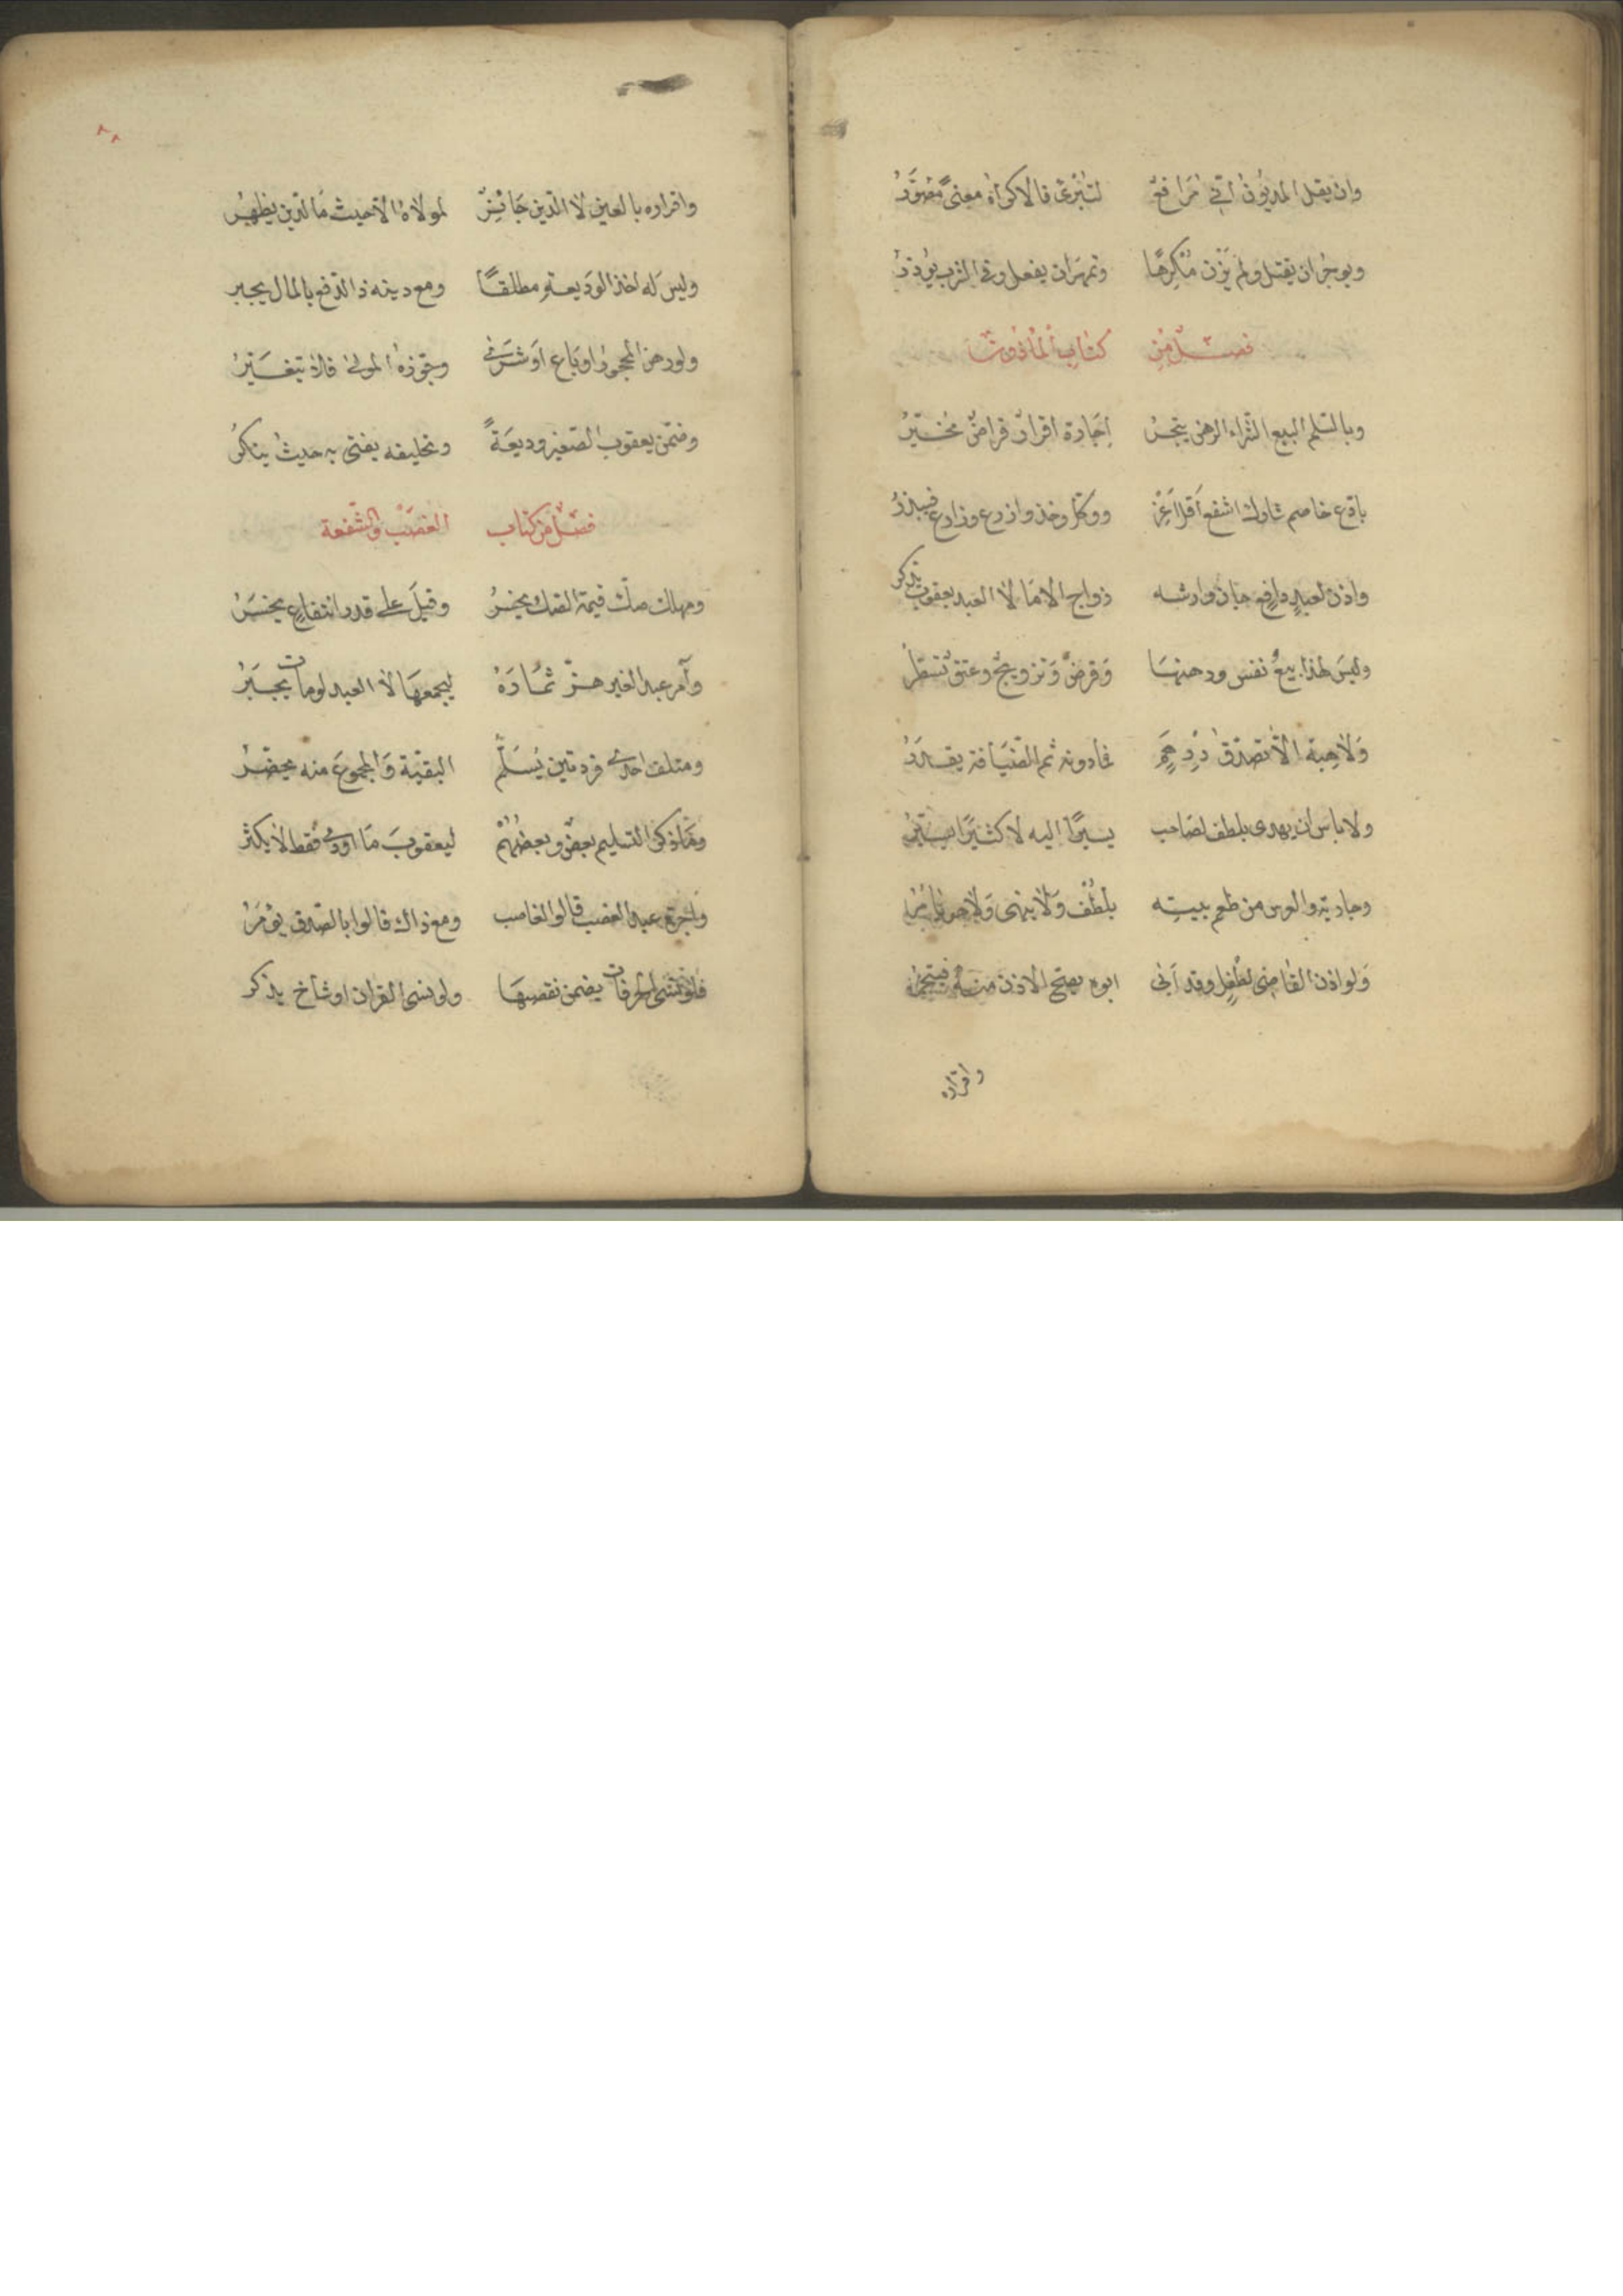 وان يقل المديون اني مرافع لتبرئ فالاكراه معنى مصور
ويوجر ان يقتل ولم يزن مكرها
فصل من كتاب المأذون
وبالسلم البيع الشراء الرهن اجارة اقرار قراض مخير
خاصم شارك اشفع اقل اعر ووكل وخذ وازرع وزارع
واذن لعبد دافع جان وارشه زواج الاما لا العبد يعقوب يذكر
وليس لهذا بيع نفس ورهنها وقرض وتزويج وعتق تسطر
ولا هبة الا تصدق درهم فما دونه ثم الضيافة يقدر
ولا باس ان يهدى بلطف لصاحب يسيرا اليه لا كثيرا
وجارية والعرس من طعم بيته بلطف ولا ينهى
ولو اذن القاضى لطفل وقد ابى ابوه يصح الاذن منه
واقراره
٨٨
واقراره بالعين لا الدين جائز لمولاه الا حيث ما الدين يظهر
وليس له اخذ الوديعة مطلقا ومع دينه ذا الدفع بالمال يجبر
ولو رهن المحجور او باع او شرى وجوزه المولى فلا تتغير
وضمن يعقوب الصغير وديعة وتحليفه يفتى به حيث ينكر
فصل من كتاب الغصب والشفعة
ومهلك صك قيمة الصك يخسر وقيل على قدر انتفاع يخسر
وآمر عبد الغير هز ثماره ليجمعها لا العبد لو مات يجبر
ومتلف احدى فردتين يسلم البقية والمجموع منه يحضر
التسليم بعض وبعضهم ليعقوب ما اودى فقط لا يكثر
واجرة عبد الغصب قالوا لغاصب ومع ذاك قالوا بالتصدق يؤمر
فلو نسى الحرفات يضمن نقصها ولو نسى القران او شاخ يذكر